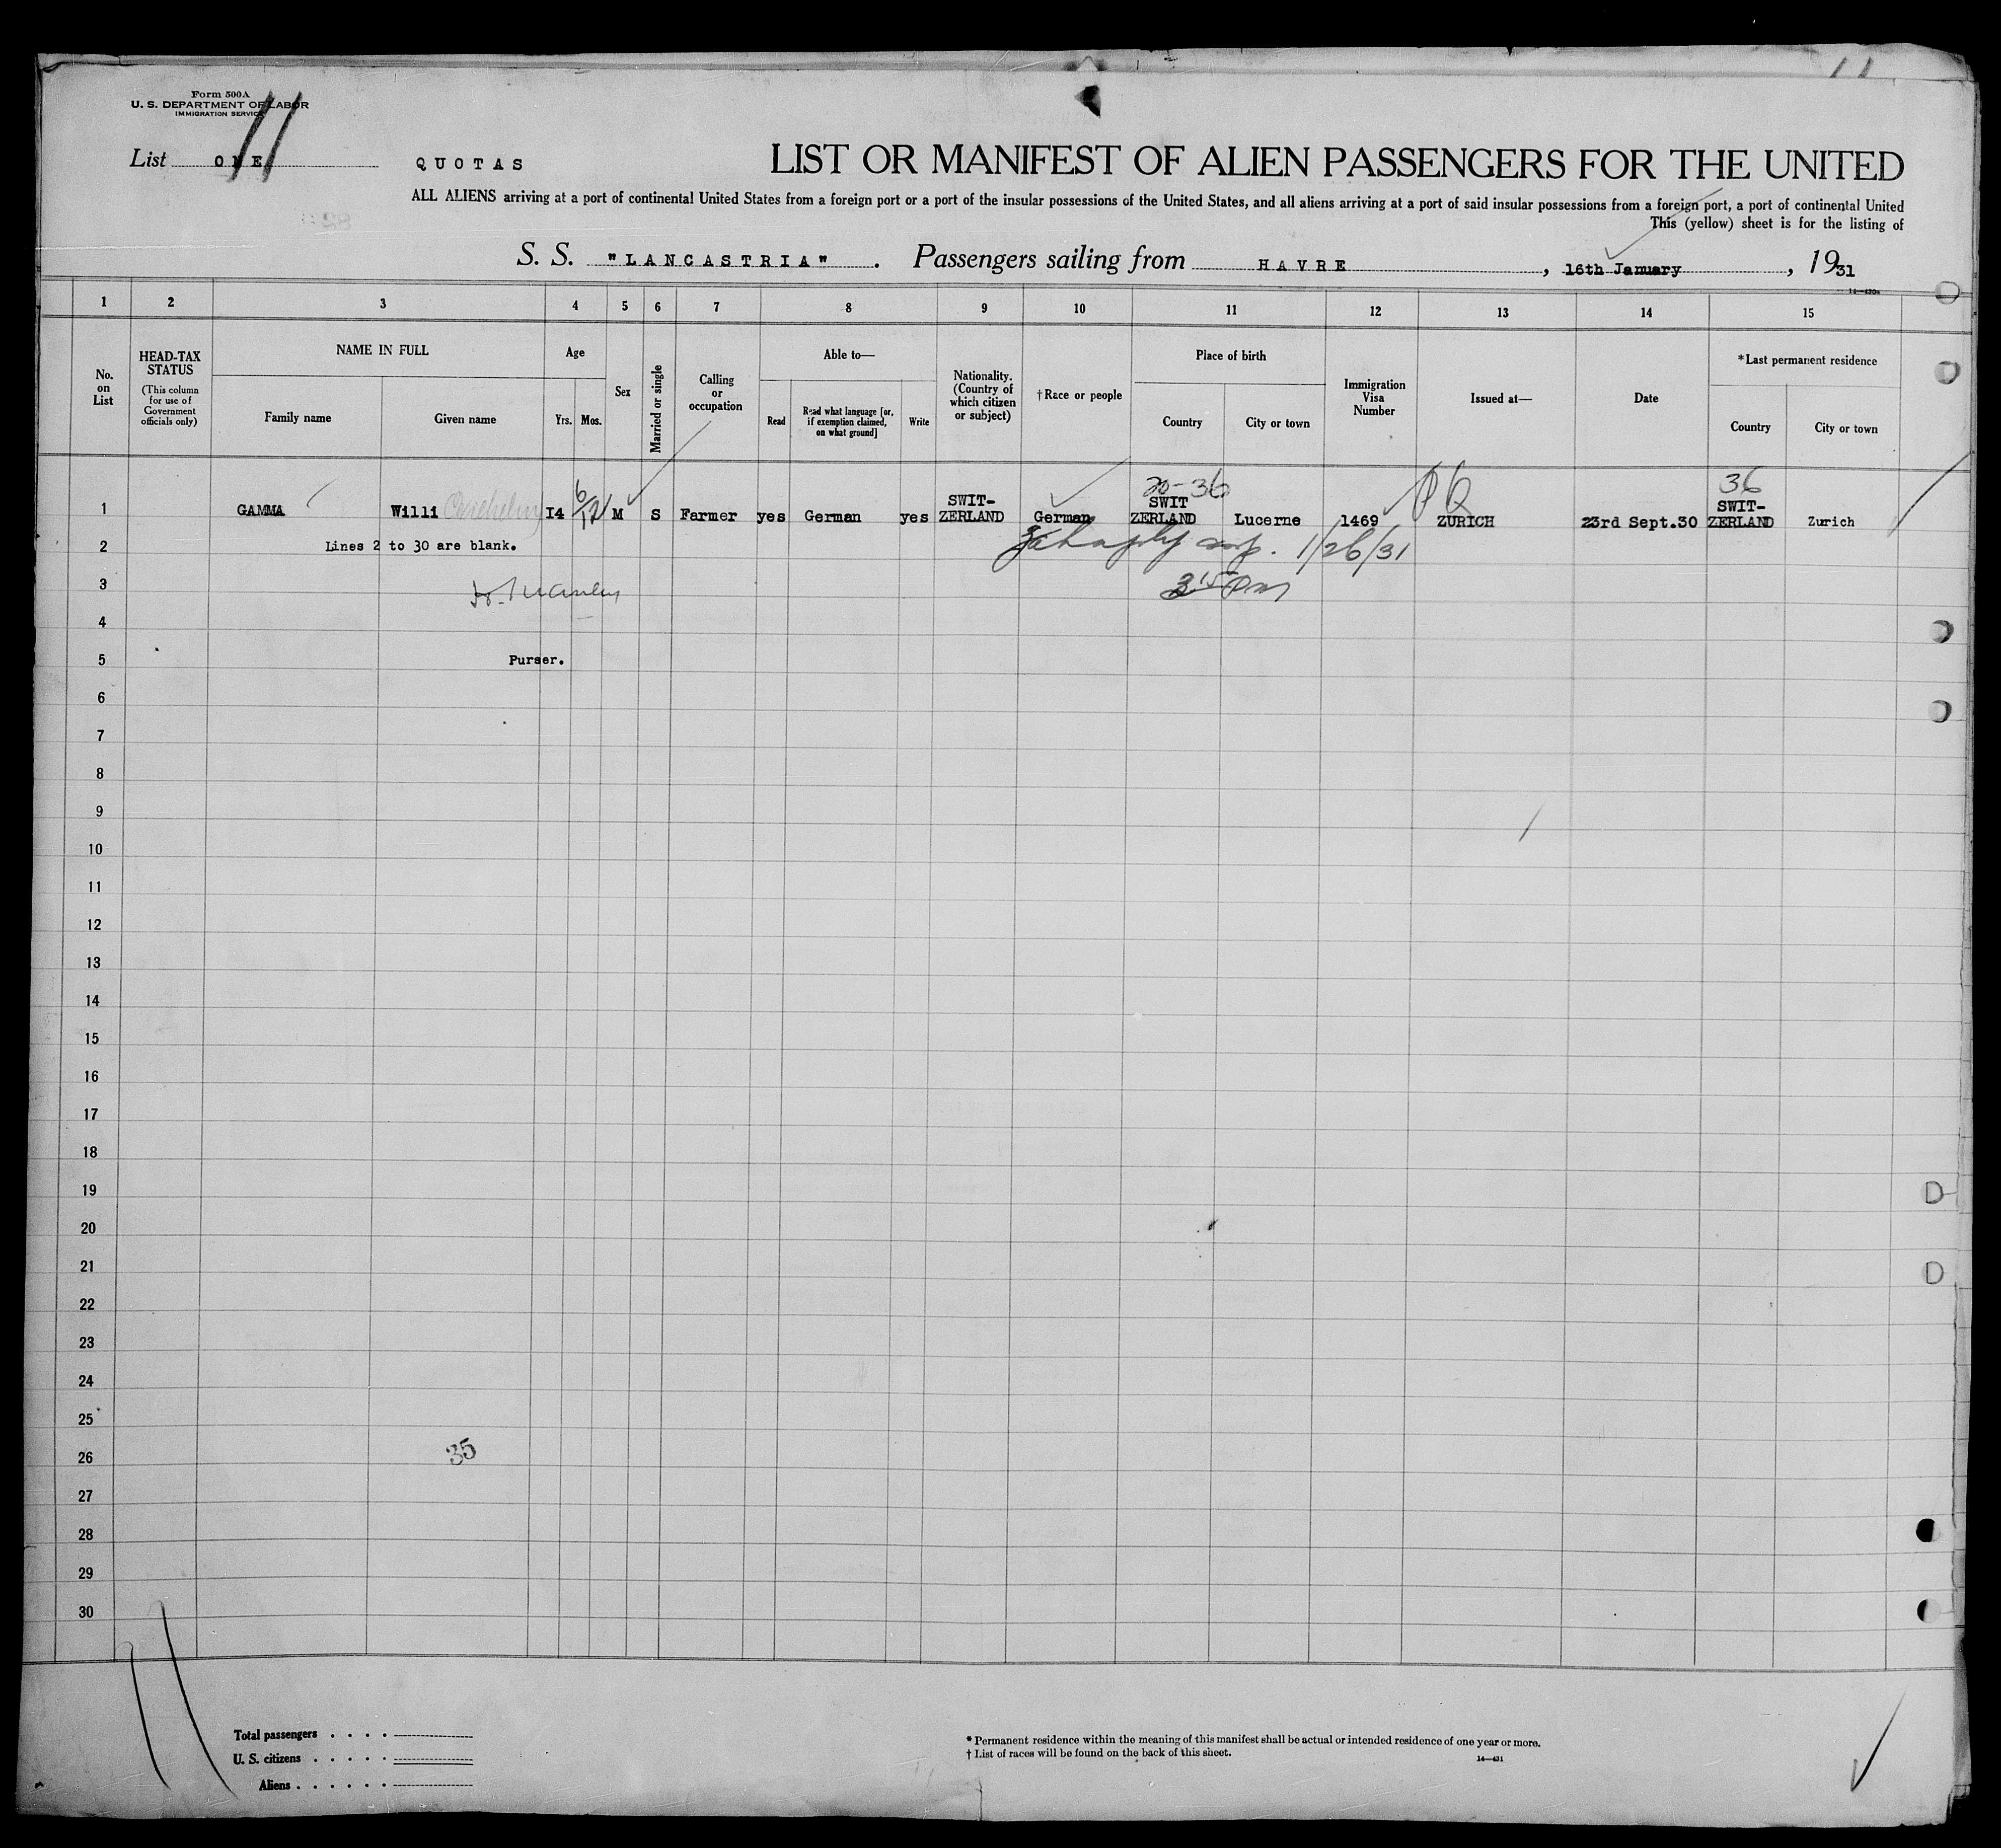 Form 500A
U. S. DEPARTMENT OF LABOR
IMMIGRATION SERVICE
11
List ONE QUOTAS
LIST OR MANIFEST OF ALIEN PASSENGERS FOR THE UNITED
ALL ALIENS arriving at a port of continental United States from a foreign port or a port of the insular possessions of the United States, and all aliens arriving at a port of said insular possessions from a foreign port, a port of continental United
This (yellow) sheet is for the listing of
S. S. "LANCASTRIA". Passengers sailing from HAVRE, 16th January, 1931
1 2 3 4 5 6 7 8 9 10 11 12 13 14 15
No. on List
HEAD-TAX STATUS
(This column for use of Government officials only)
NAME IN FULL
Family name Given name
Age
Yrs. Mos.
Sex
Married or single
Calling or occupation
Able to—
Read
Read what language [or, if exemption claimed, on what ground]
Write
Nationality. (Country of which citizen or subject)
†Race or people
Place of birth
Country City or town
Immigration Visa Number
Issued at—
Date
*Last permanent residence
Country City or town
20-36 36
1 GAMMA Willi 14 6/12 M S Farmer yes German yes SWIT-ZERLAND German SWIT ZERLAND Lucerne 1469 ZURICH 23rd Sept.30 SWIT-ZERLAND Zurich
2 Lines 2 to 30 are blank. 1/26/31
3 3 15 PM
4
5 Purser.
6
7
8
9
10
11
12
13
14
15
16
17
18
19
20
21
22
23
24
25
26 35
27
28
29
30
Total passengers . . . .
U. S. citizens . . . . .
Aliens . . . . . .
* Permanent residence within the meaning of this manifest shall be actual or intended residence of one year or more.
† List of races will be found on the back of this sheet.
14—431